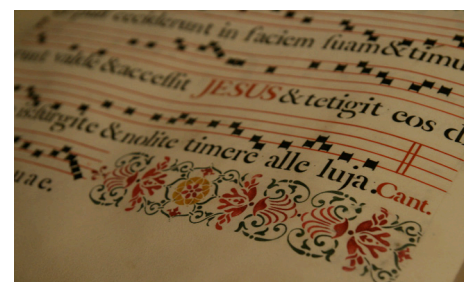 ceciderunt in faciem suam & timu
valde & accessit JESUS & tetigit eos di
surgite & nolite timere alle luja. Cant.
uae.